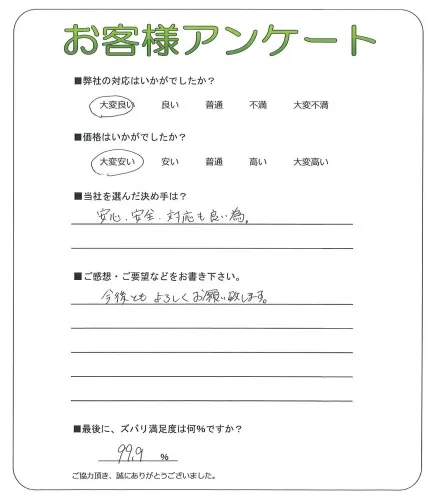 お客様アンケート
■弊社の対応はいかがでしたか？
大変良い 良い 普通 不満 大変不満
■価格はいかがでしたか？
大変安い 安い 普通 高い 大変高い
■当社を選んだ決め手は？
安心、安全、対応も良い為。
■ご感想・ご要望などをお書き下さい。
今後とも よろしくお願い致します。
■最後に、ズバリ満足度は何％ですか？
99.9 ％
ご協力頂き、誠にありがとうございました。